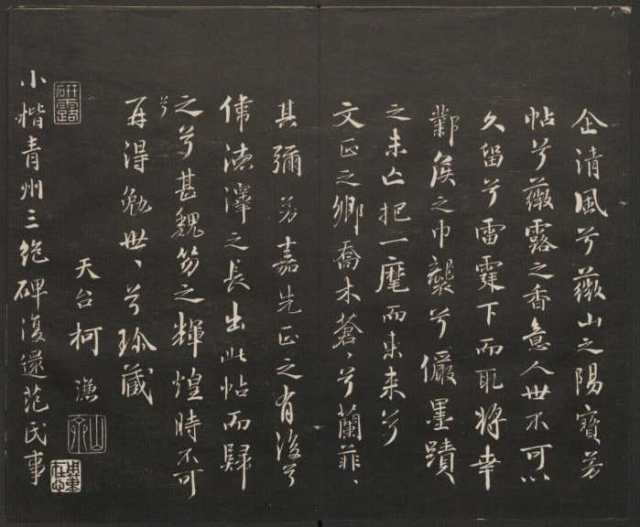 企清風兮薇山之陽寶芳
帖兮薇露之香意人世不可以
久留兮雷霆下而取將幸
鄴侯之巾襲兮儼墨蹟
之未亡把一麾而東来兮
文正之鄉喬木蒼、兮蘭菲、
其彌芳嘉先正之有後兮
偉德澤之長出此帖而歸
之兮甚魏笏之輝煌時不可
再得勉世、兮珍藏
天台柯
小楷青州三絕碑復還范氏事